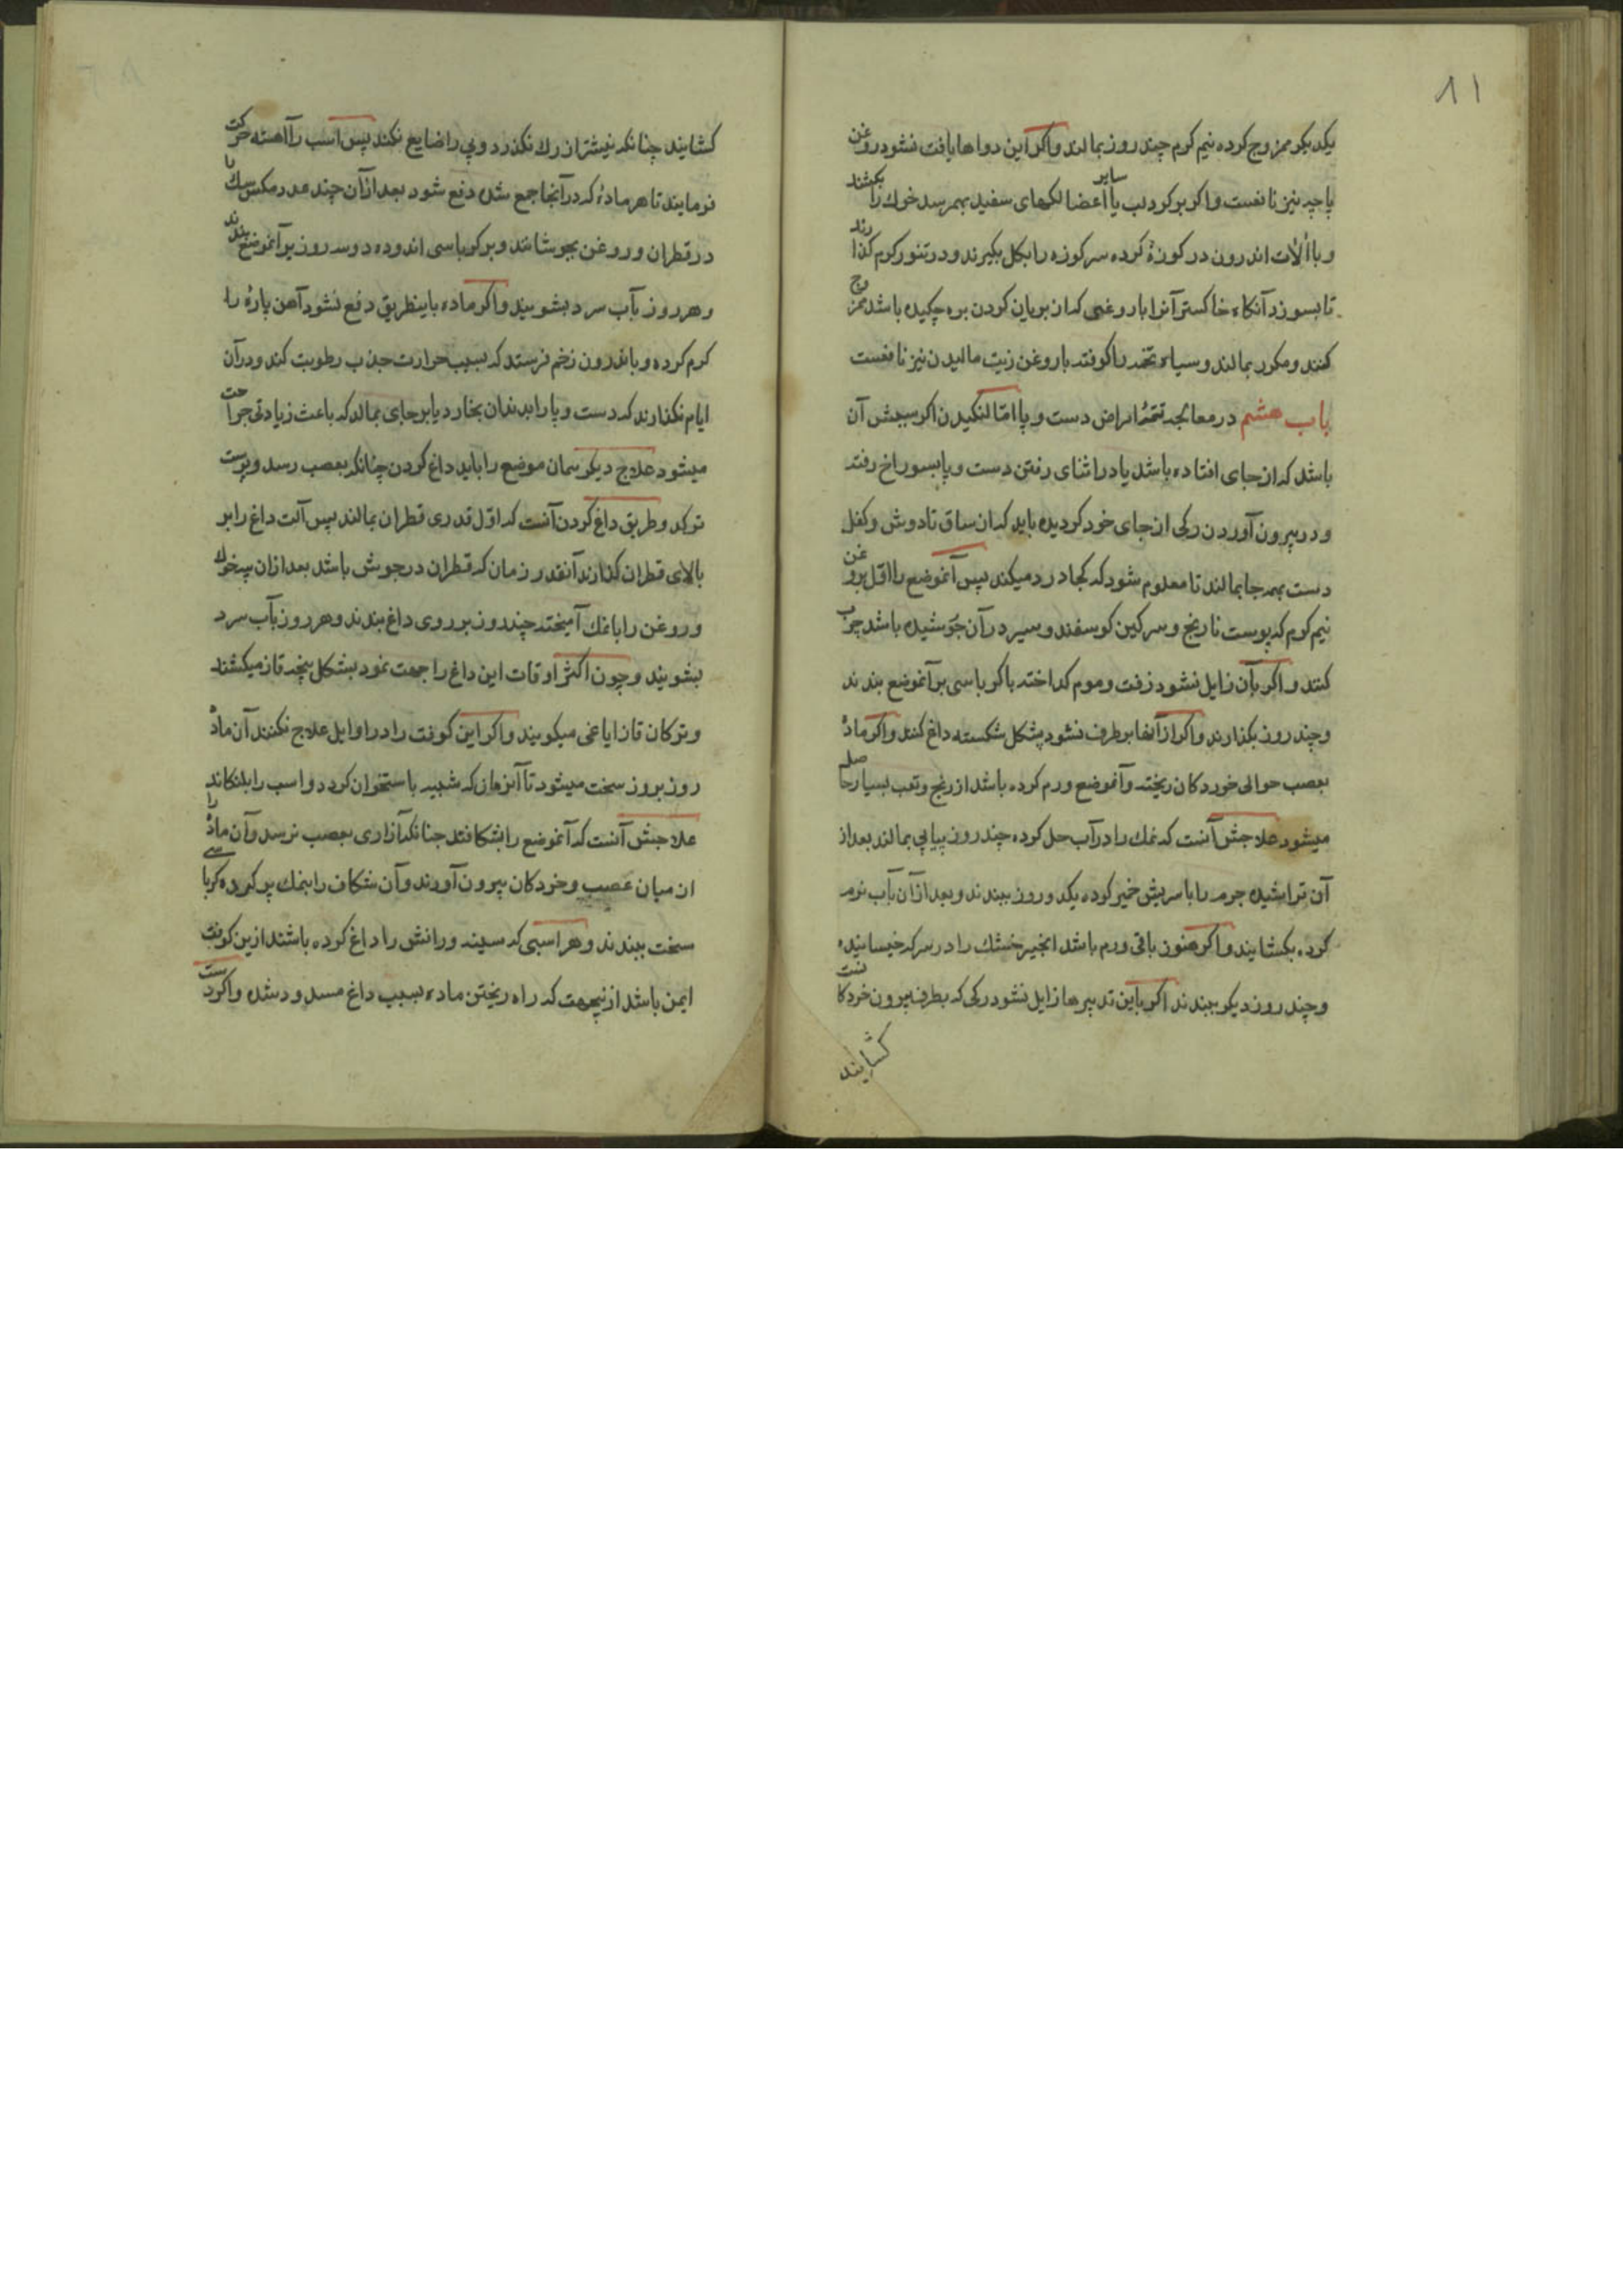 ۸۱
یکدیکر ممزوج کرده نیم کرم چند روز بمالند واکر این دواها یافت نشود روغن
پاچه نیز نافعست واکر بر کرد لب یا سایر اعضا لکهای سفید بهمرسد خوک را بکشند
و با آلات اندرون در کوزهٔ کرده سر کوزه را بکل بکیرند و در تنور کرم کذارند
تا بسوزد آنکاه خاکستر آنرا با روغنی که از بریان کردن بره چکیده باشد ممزوج
کنند و مکرر بمالند و سیاه تخمه را کوفته با روغن زیت مالیدن نیز نافعست
باب هشتم در معالجه تتمهٔ امراض دست و پا امّا لنکیدن اکر سببش آن
باشد که از جای افتاده باشد یا در اثنای رفتن دست و پا بسوراخ رفته
و در بیرون آوردن رکی از جای خود کردیده باید که از ساق تا دوش و کفل
دست بهمه جا بمالند تا معلوم شود که کجا درد میکند پس آنموضع را اوّل بروغن
نیم کرم که پوست نارنج و سرکین کوسفند و سیر در آن جوشیده باشد چرب
کنند و اکر بآن زایل نشود زفت و موم کداخته با کرباسی بر آنموضع بندند
و چند روز بکذارند واکر از آنها برطرف نشود بشکل شکسته داغ کنند واکر مادهٔ
بعصب حوالی خوردکان ریخته و آنموضع ورم کرده باشد از رنج و تعب بسیار حاصل
میشود علاجش آنست که نمك را در آب حل کرده چند روز پیاپی بمالند بعد از
آن تراشیده جرم را با سریش خمیر کرده یکد و روز ببندند و بعد از آن بآب نرم
کرده بکشایند و اکر هنوز باقی ورم باشد انجیر خشك را در سرکه خیسانیده
و چند روز دیکر ببندند اکر باین تدبیرها زایل نشود رکی که بطرف بیرون خردکا نست
کشایند
کشایند چنانکه نیشتر از رك نکذرد و پی را ضایع نکند پس اسب را آهسته حرکت
فرمایند تا هر مادهٔ که در آنجا جمع شده دفع شود بعد از آن چند عدد مکس سك را
در قطران و روغن بجوشانند و بر کرباسی اندوده دو سه روز بر آنموضع بندند
و هر روز بآب سرد بشویند واکر ماده باینطریق دفع نشود آهن پارهٔ را
کرم کرده و باندرون زخم فرستد که بسبب حرارت جذب رطوبت کند و در آن
ایام نکذارند که دست و پا را بدندان بخارد یا بر جای بمالد که باعث زیادتی جراحت
میشود علاج دیکر همان موضع را باید داغ کردن چنانکه بعصب رسد و پوست
ترکد و طریق داغ کردن آنست که اوّل قدری قطران بمالند پس آلت داغ را بر
بالای قطران کذارند آنقدر زمان که قطران در جوش باشد بعد ازان پیه خوك
و روغن را با نمك آمیخته چند روز بر روی داغ بندند و هر روز بآب سرد
بشویند و چون اکثر اوقات این داغ را جهت نمود بشکل پنجه قاز میکشند
و ترکان قاز ایاغی میکویند واکر این کوفت را در اوایل علاج نکنند آن مادهٔ
روز بروز سخت میشود تا آنزمان که شبیه باستخوان کردد و اسب را بلنکاند
علاجش آنست که آنموضع را بشکافند چنانکه آزاری بعصب نرسد و آن ماده را
از میان عصب و خردکان بیرون آورند و آن شکاف را بنمك پر کرده کرباسی
سخت ببندند و هر اسبی که سینه و رانش را داغ کرده باشند ازین کوفت
ایمن باشد از نیجهت که راه ریختن ماده بسبب داغ مسدود شده واکر دست